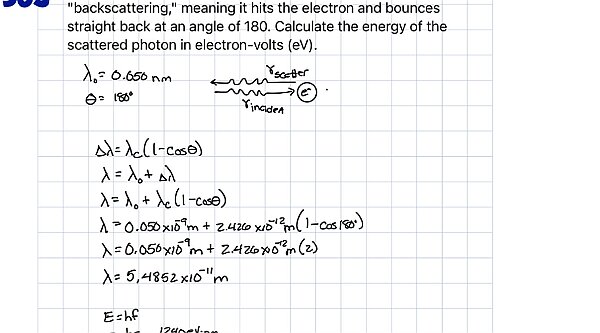 "backscattering," meaning it hits the electron and bounces
straight back at an angle of 180. Calculate the energy of the
scattered photon in electron-volts (eV).
λ₀ = 0.050 nm
θ = 180°
γscatter
e⁻
γincident
Δλ = λc(1-cosθ)
λ = λ₀ + Δλ
λ = λ₀ + λc(1-cosθ)
λ = 0.050x10⁻⁹m + 2.426x10⁻¹²m(1-cos180°)
λ = 0.050x10⁻⁹m + 2.426x10⁻¹²m(2)
λ = 5.4852x10⁻¹¹m
E = hf